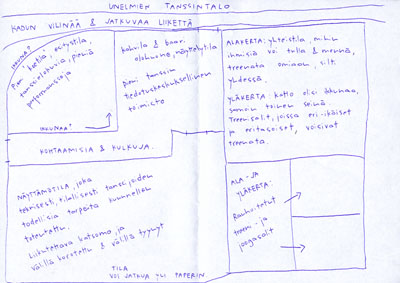 UNELMIEN TANSSINTALO
KADUN VILINÄÄ & JATKUVAA LIIKETTÄ
IKKUNA!
pieni "koetila", esitystila,
tanssielokuvia, pieniä
performansseja
IKKUNAT
kahvila & baari
olohuone, näyttelytila
pieni tanssin
tiedotuskeskuksellinen
toimisto
ALAKERTA: yhteistila, mihin
ihmisiä voi tulla & mennä,
treenata omiaan, silti
yhdessä.
YLÄKERTA: katto olisi ikkunaa,
samoin toinen seinä
Treenisalit, joissa eri-ikäiset
ja eritasoiset, voisivat
treenata.
KOHTAAMISIA & KULKUJA.
NÄYTTÄMÖTILA, joka
teknisesti, tilallisesti tanssitaiden
todellisia tarpeita kuunnellen
toteutettu.
Liikuteltava katsomo, ja
välillä korotettu & välillä tyynyt
ALA- JA
YLÄKERTA:
Rauhoitetut
treeni- ja
joogasalit
TILA
VOI JATKUA YLI PAPERIN.